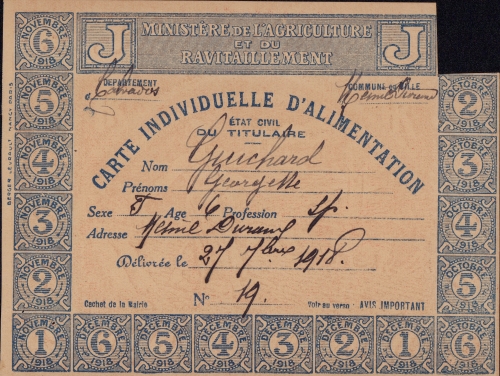 NOVEMBRE 6 1918
J MINISTÈRE DE L'AGRICULTURE J
ET DU
RAVITAILLEMENT
DÉPARTEMENT
Calvados
COMMUNE OU VILLE
Mesnil Durand
CARTE INDIVIDUELLE D'ALIMENTATION
ÉTAT CIVIL
DU TITULAIRE
Nom Guichard
Prénoms Georgette
Sexe F Age 6 Profession sp.
Adresse Mesnil Durand
Délivrée le 27 7bre 1918.
Cachet de la Mairie N° 19. Voir au verso : AVIS IMPORTANT
NOVEMBRE 5 1918
NOVEMBRE 4 1918
NOVEMBRE 3 1918
NOVEMBRE 2 1918
NOVEMBRE 1 1918
DÉCEMBRE 6 1918
DÉCEMBRE 5 1918
DÉCEMBRE 4 1918
DÉCEMBRE 3 1918
DÉCEMBRE 2 1918
DÉCEMBRE 1 1918
OCTOBRE 2 1918
OCTOBRE 3 1918
OCTOBRE 4 1918
OCTOBRE 5 1918
OCTOBRE 6 1918
BERGER-LEVRAULT, NANCY-PARIS